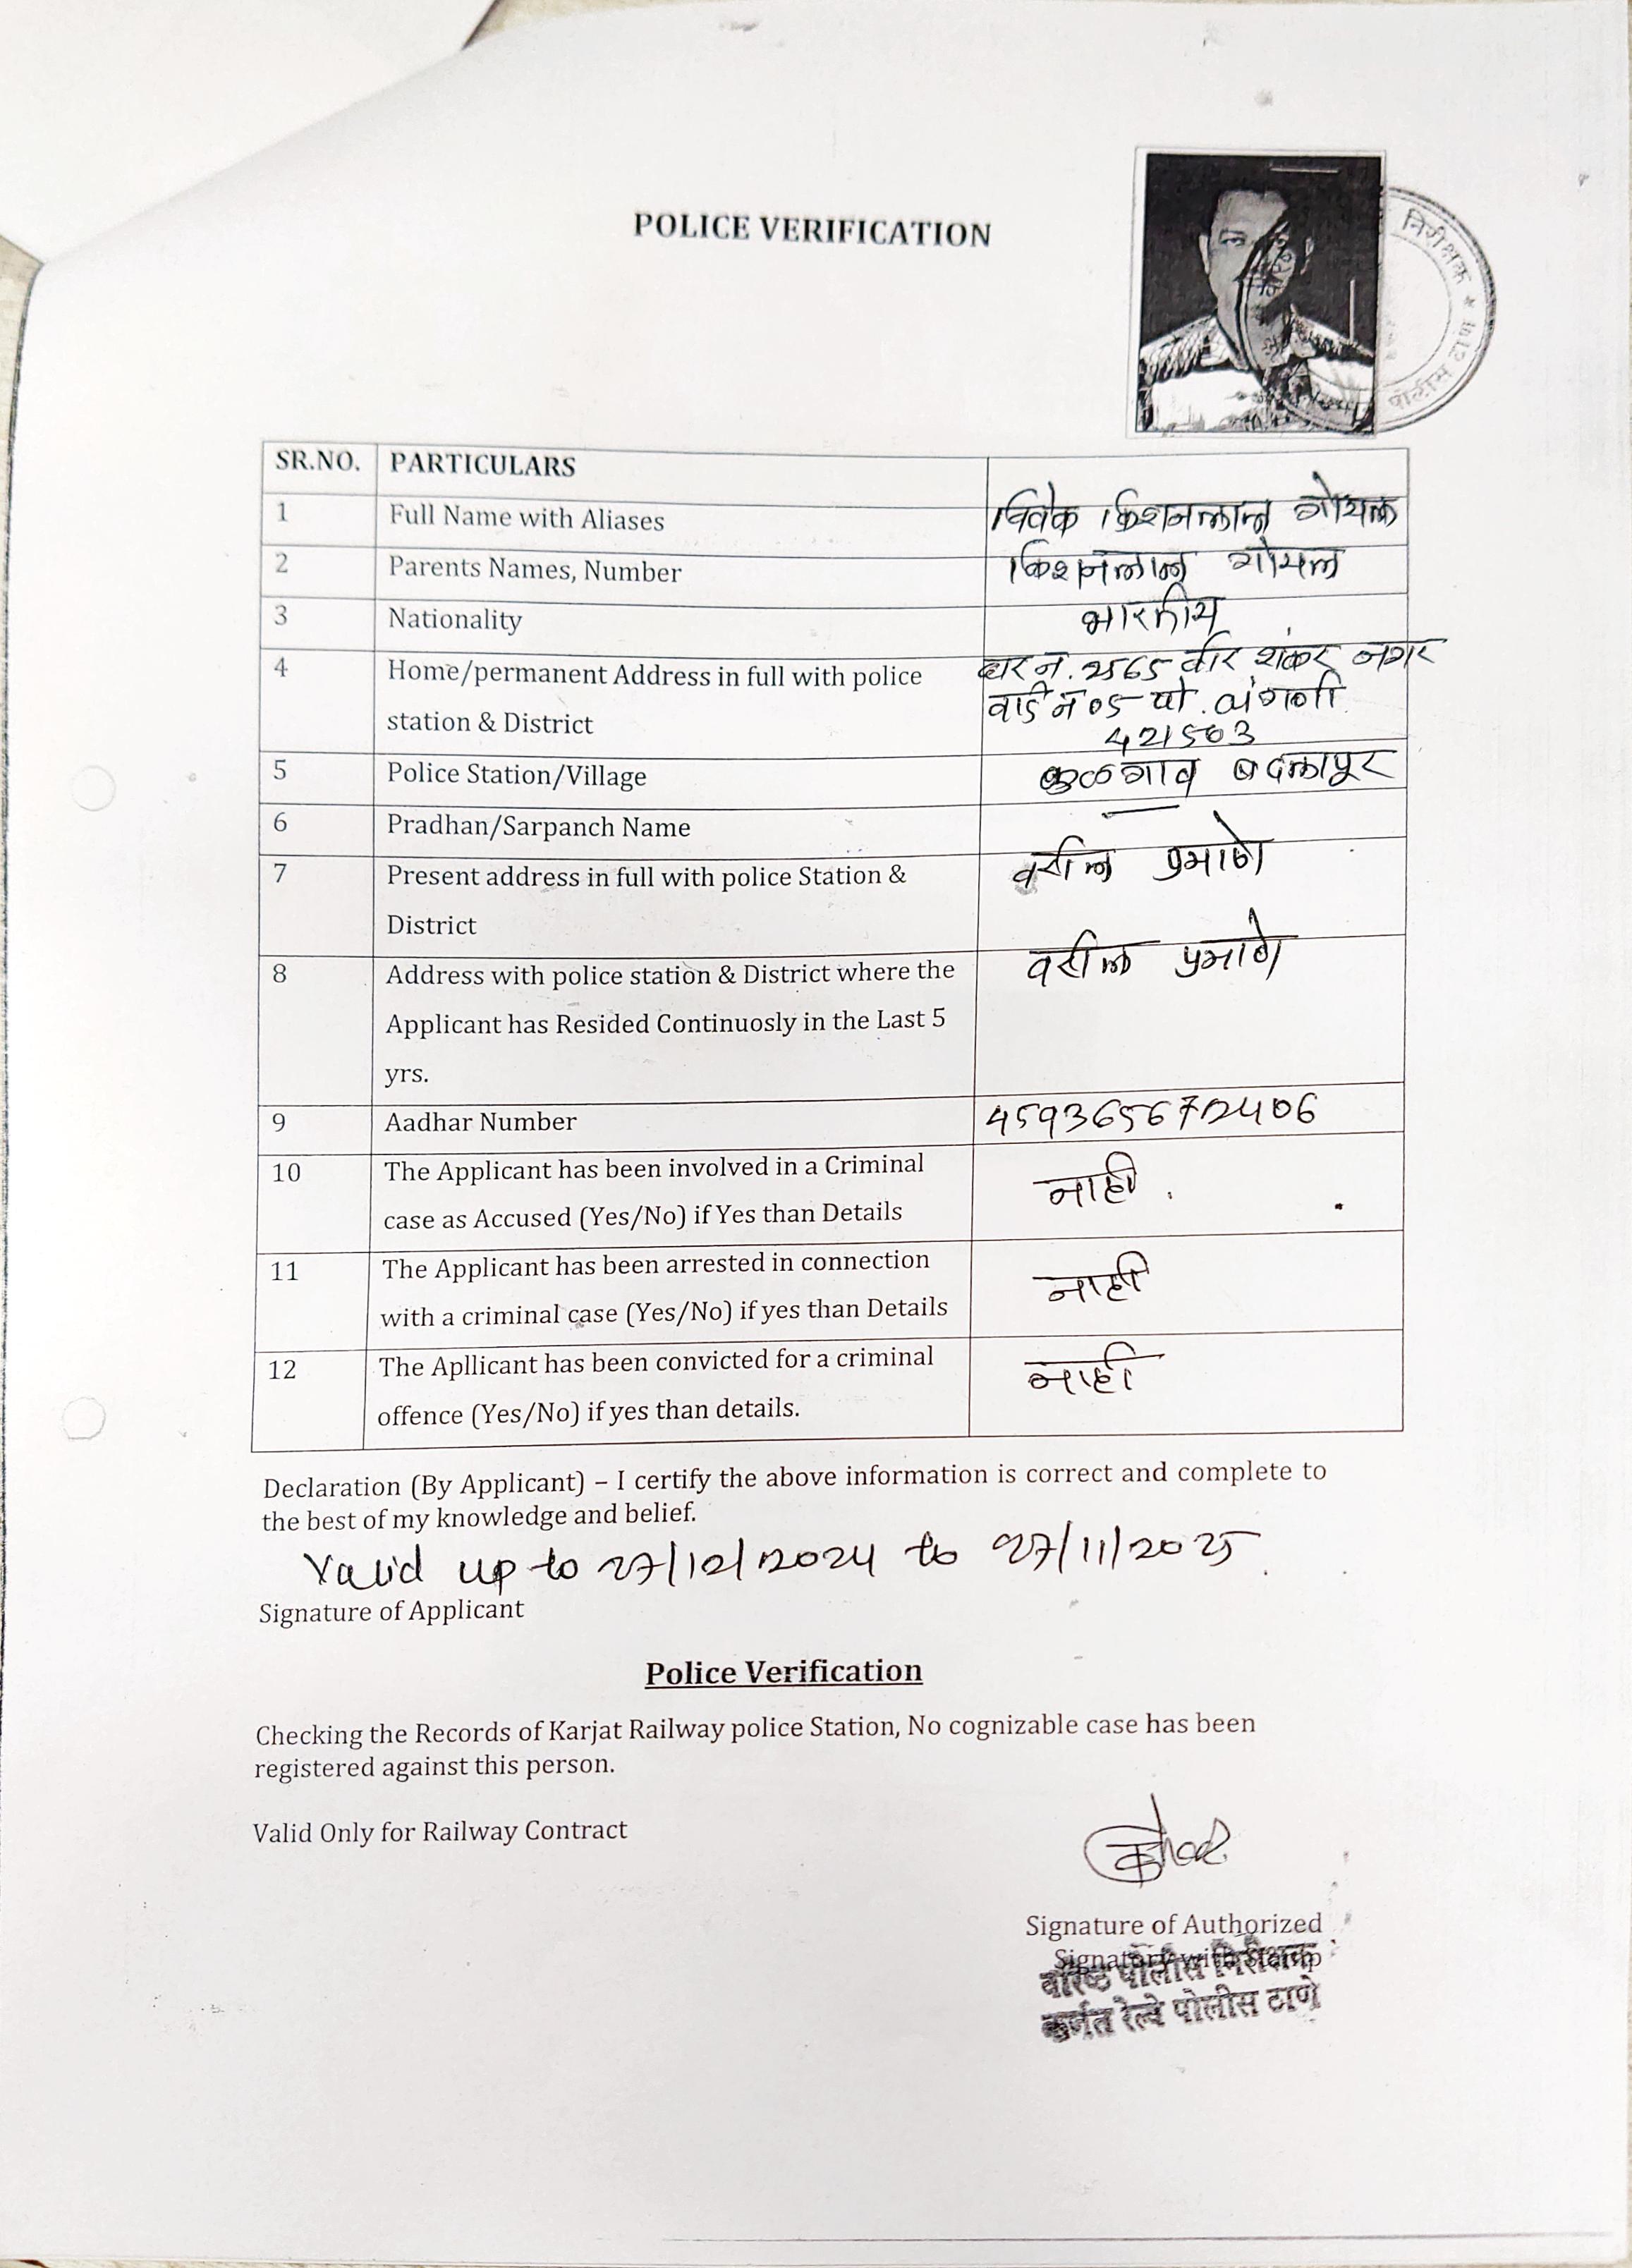 POLICE VERIFICATION
निरीक्षक * ठाणे
पोलीस
SR.NO. PARTICULARS
1 Full Name with Aliases विवेक किशनलाल गोयल
2 Parents Names, Number किशनलाल गोयल
3 Nationality भारतीय
4 Home/permanent Address in full with police घर नं. 2565 वीर शंकर नगर
station & District वार्ड नं 05 पो.
421503
5 Police Station/Village कुळगाव बदलापूर
6 Pradhan/Sarpanch Name —
7 Present address in full with police Station & वरील प्रमाणे
District
8 Address with police station & District where the वरील प्रमाणे
Applicant has Resided Continuosly in the Last 5
yrs.
9 Aadhar Number 459365672406
10 The Applicant has been involved in a Criminal नाही .
case as Accused (Yes/No) if Yes than Details
11 The Applicant has been arrested in connection नाही
with a criminal case (Yes/No) if yes than Details
12 The Apllicant has been convicted for a criminal नाही
offence (Yes/No) if yes than details.
Declaration (By Applicant) – I certify the above information is correct and complete to
the best of my knowledge and belief.
Valid up to 27/12/2024 to 27/11/2025.
Signature of Applicant
Police Verification
Checking the Records of Karjat Railway police Station, No cognizable case has been
registered against this person.
Valid Only for Railway Contract
Signature of Authorized
Signatory with Stamp
वरिष्ठ पोलीस निरीक्षक
कर्जत रेल्वे पोलीस ठाणे